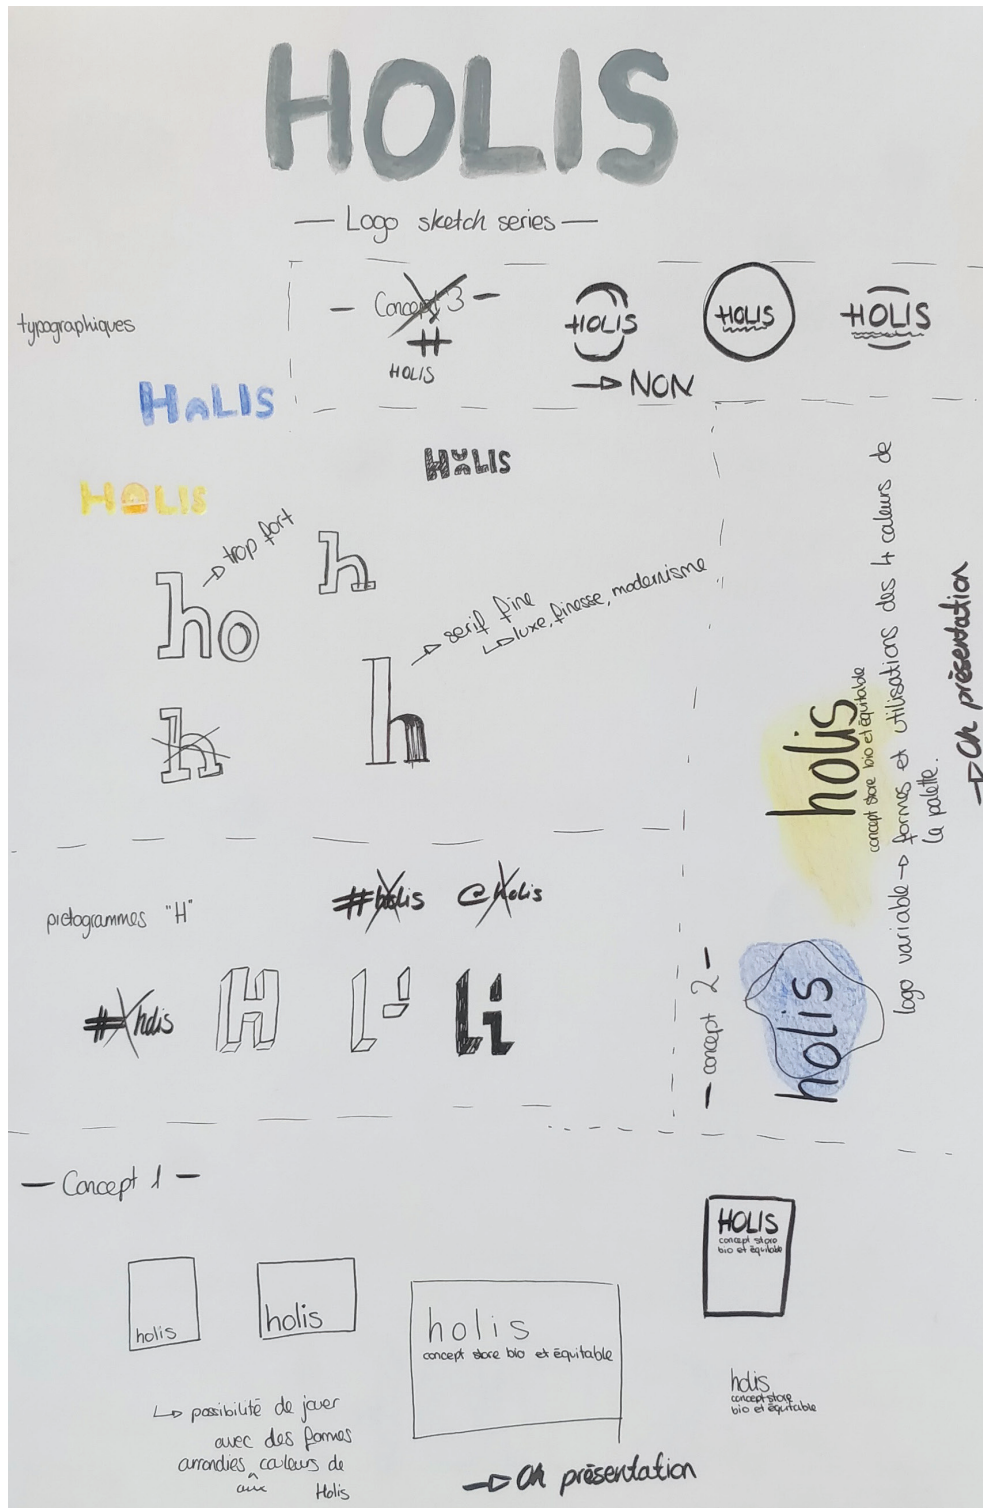 HOLIS
— Logo sketch series —
typographiques
— Concept 3 —
HOLIS
HOLIS
HOLIS
HOLIS
→ NON
HOLIS
HOLIS
HOLIS
ho
→ trop fort
h
h
→ serif fine
↳ luxe, finesse, modernisme
h
pictogrammes "H"
#holis
@holis
#holis
H
— concept 2 —
holis
concept store bio et équitable
holis
logo variable → formes et utilisations des 4 couleurs de
la palette.
→ Ok présentation
— Concept 1 —
holis
holis
holis
concept store bio et équitable
HOLIS
concept store
bio et équitable
holis
concept store
bio et équitable
↳ possibilité de jouer
avec des formes
arrondies aux couleurs de
Holis
→ Ok présentation